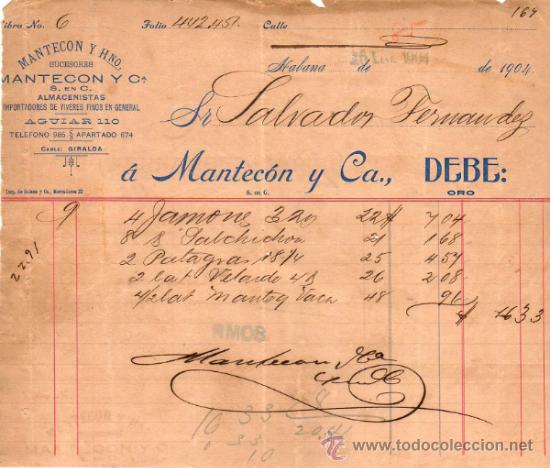 Libro No. 6 Folio 442.451. Calle 169
MANTECON Y HNO.
SUCESORES
MANTECON Y Ca
S. EN C.
ALMACENISTAS
IMPORTADORES DE VIVERES FINOS EN GENERAL
AGUIAR 110
TELEFONO 985 APARTADO 674
CABLE: GIRALDA
Habana de de 1904
Sr Salvador Fernandez
á Mantecón y Ca., DEBE:
S. en C. ORO
9 4 Jamone 32 22 $ 7 04
8 S Salchichon 21 1 68
2 Patagras 18 1/4 25 4 57
2 lat Velarde 26 2 08
4/2 lat Manteq Vaca 48 96
$ 16 33
22.91
Mantecon y Ca
16 33
20.41
www.todocoleccion.net